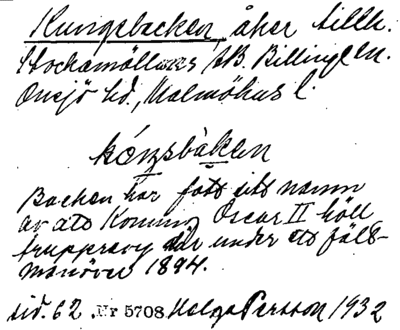 Kungsbacken, åker tillh.
Stockamöllans AB. Billingen.
Onsjö hd., Malmöhus l.
kóngsbàken
Backen har fått sitt namn
av att Konung Oscar II höll
trupprevy där under ett fält-
manöver 1894.
sid. 62. Nr 5708. Helge Persson 1932